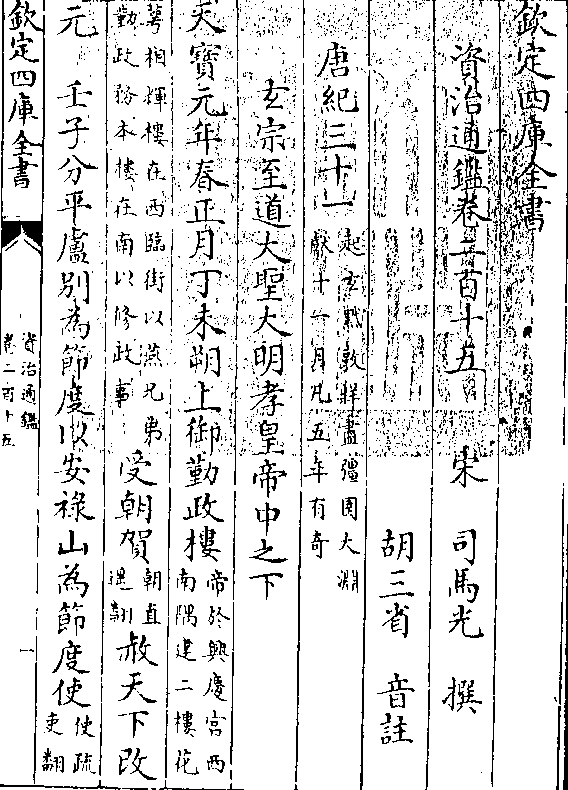 欽定四庫全書
資治通鑑卷二百十五
宋 司馬光 撰
胡三省 音註
唐紀三十一起玄黓敦牂盡彊圉大淵獻十一月凡五年有奇
玄宗至道大聖大明孝皇帝中之下
天寶元年春正月丁未朔上御勤政樓帝於興慶宫西南隅建二樓花
萼相輝樓在西臨街以燕兄弟勤政務本樓在南以修政事受朝賀朝直遥翻赦天下改
元 壬子分平盧别為節度以安祿山為節度使使疏吏翻
欽定四庫全書
資治通鑑
卷二百十五
一